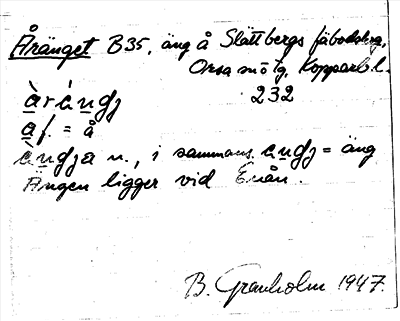 Åränget B35, äng å Slättbergs fäbodskog,
Orsa sn o tg, Kopparb. l.
232
àrà̀ndz
af. = å
à̀ndza n., i sammans. ändz = äng
Ängen ligger vid Enån.
B. Granholm 1947.